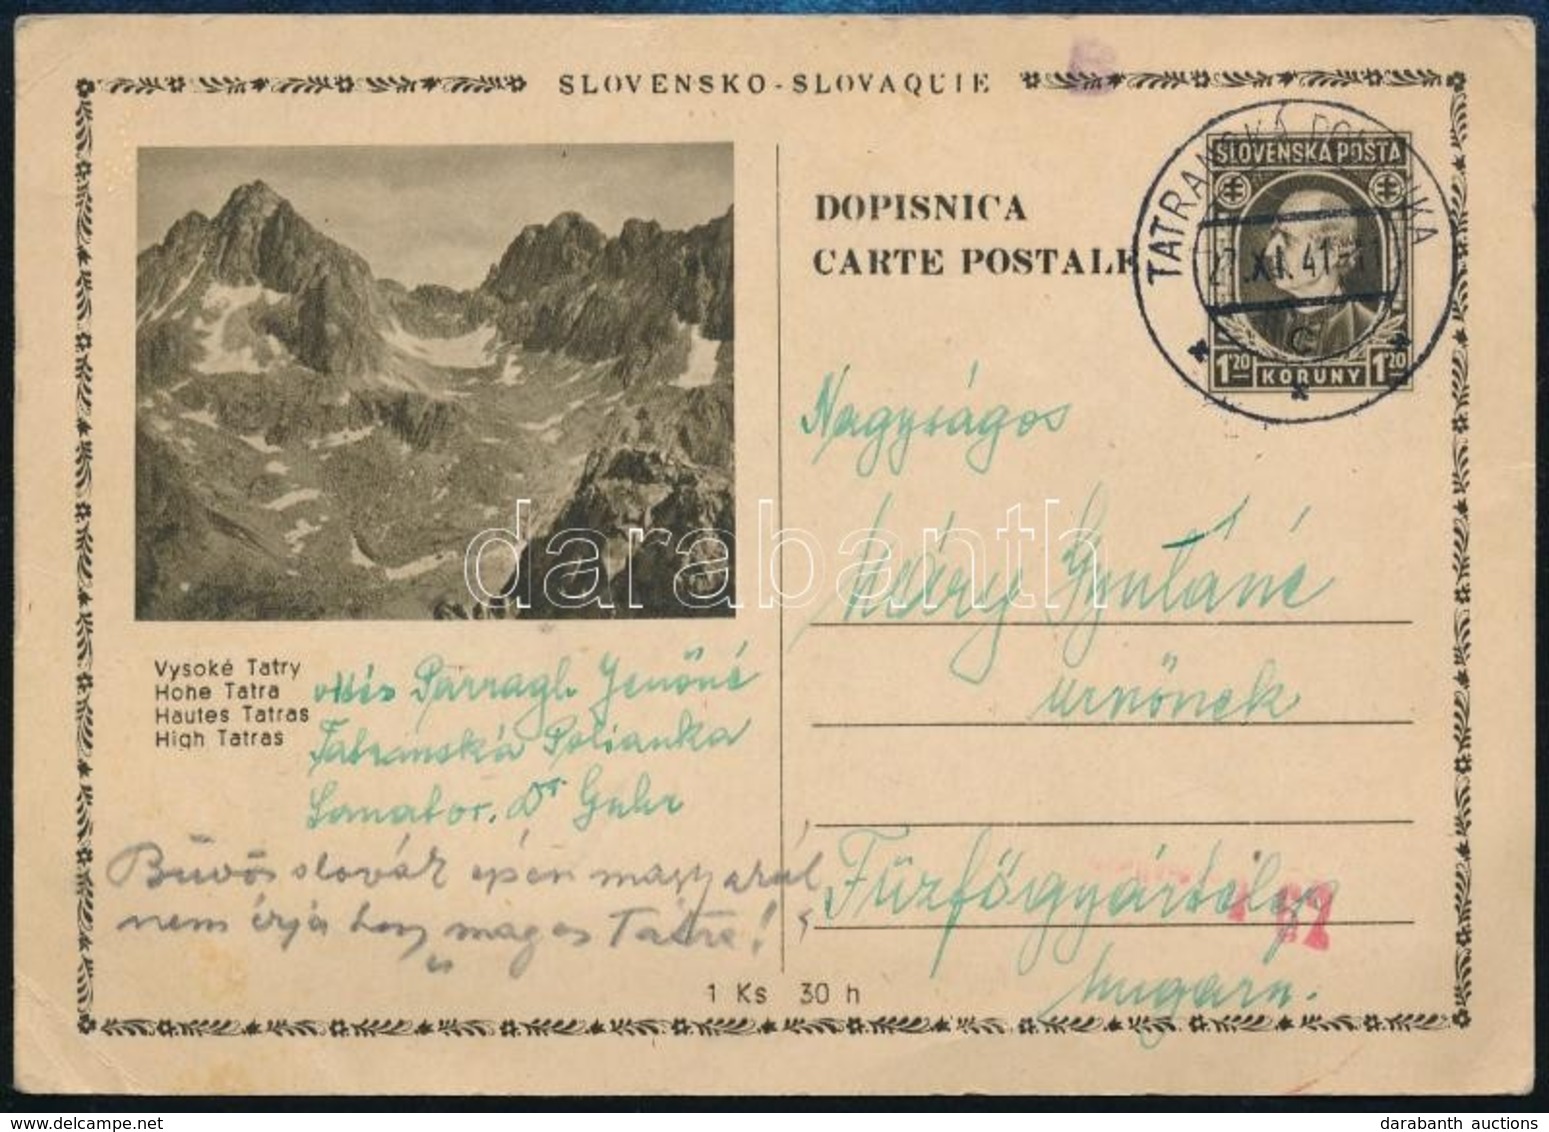 SLOVENSKO - SLOVAQUIE
DOPISNICA
CARTE POSTALE
SLOVENSKÁ POŠTA
TATRANSKÁ POLIANKA
27.XI.41
C
1 20 KORUNY 1 20
Nagyságos
Gyuláné
urnőnek
Fűzfőgyártelep
Hungaria.
Vysoké Tatry
Hohe Tatra
Hautes Tatras
High Tatras
Parragh Jenőné
Tatranská Polianka
Sanator. Dr Guhr
slovák épen magyarul
nem írja hogy magas Tátra!
1 Ks 30 h
67
darabanth
darabanth auctions